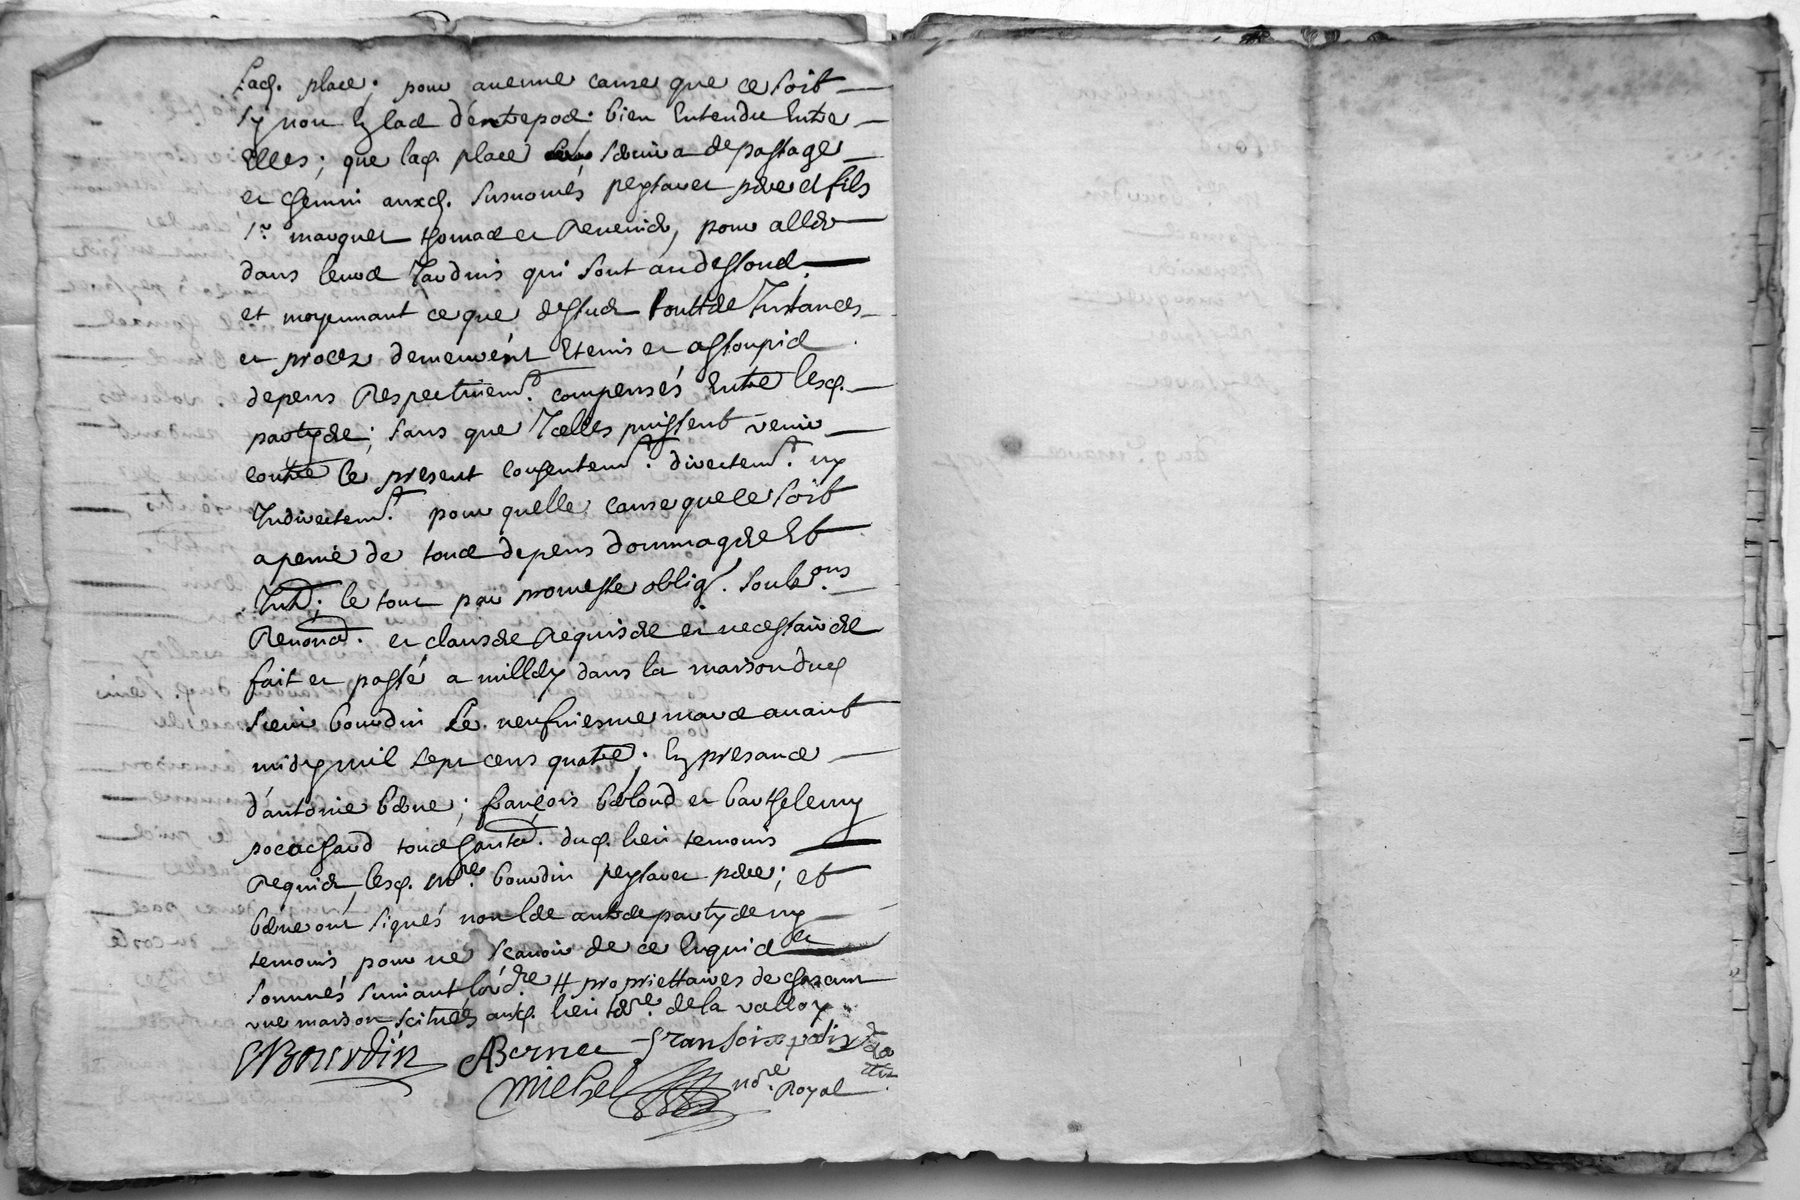 lad. place; pour aucune cause que ce soit
sy non d'entrepos: bien Entendu Entre
Elles; que lad. place servira de passage
et chemin auxd. susnomés peytavet pere et fils
sr. marquet thomas et Reveride, pour aller
dans leurs Jardins qui sont au dessous
et moyennant ce que dessus toutes Instances
et procez demeurent et assoupis
depens Respectivemt. compensés Entre lesd.
partyes; sans que Icelles puissent venir
contre le present consentemt. directemt. ny
Indirectemt. pour quelle cause que ce soit
a peine de tous depens dommages Et
Intts; le tout par promesse oblig. soubons
Renons. et clauses Requises et necessaires
fait et passé a dans la maison dud
sieur bourdin Le neufviesme mars avant
midy mil sept cens quatre; En presance
d'antoine berne; françois et barthelemy
tous dud. lieu temoins
Requis, lesd. Mre. bourdin peytavet pere; et
berne ont signés non les autres partyes ny
temoins pour ne scavoir de ce Enquis et
sommés suivant l'ordre # propriettaires de chascun
une maison scitués aud. lieu de la valloy
Bourdin ABerne fransois
michel nore. Royal